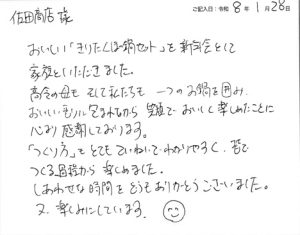 ご記入日：令和 8年 1月 28日
佐田商店 様
おいしい「きりたんぽ鍋セット」を新年会として
家族といただきました。
高令の母も そして私たちも 一つのお鍋を囲み、
おいしい香りに包まれながら 笑顔で おいしく 楽しめたことに
心より 感謝しております。
「つくり方」も とても ていねいで わかりやすく、皆で
つくる過程から 楽しめました。
しあわせな時間を どうも ありがとうございました。
又、楽しみにしています。